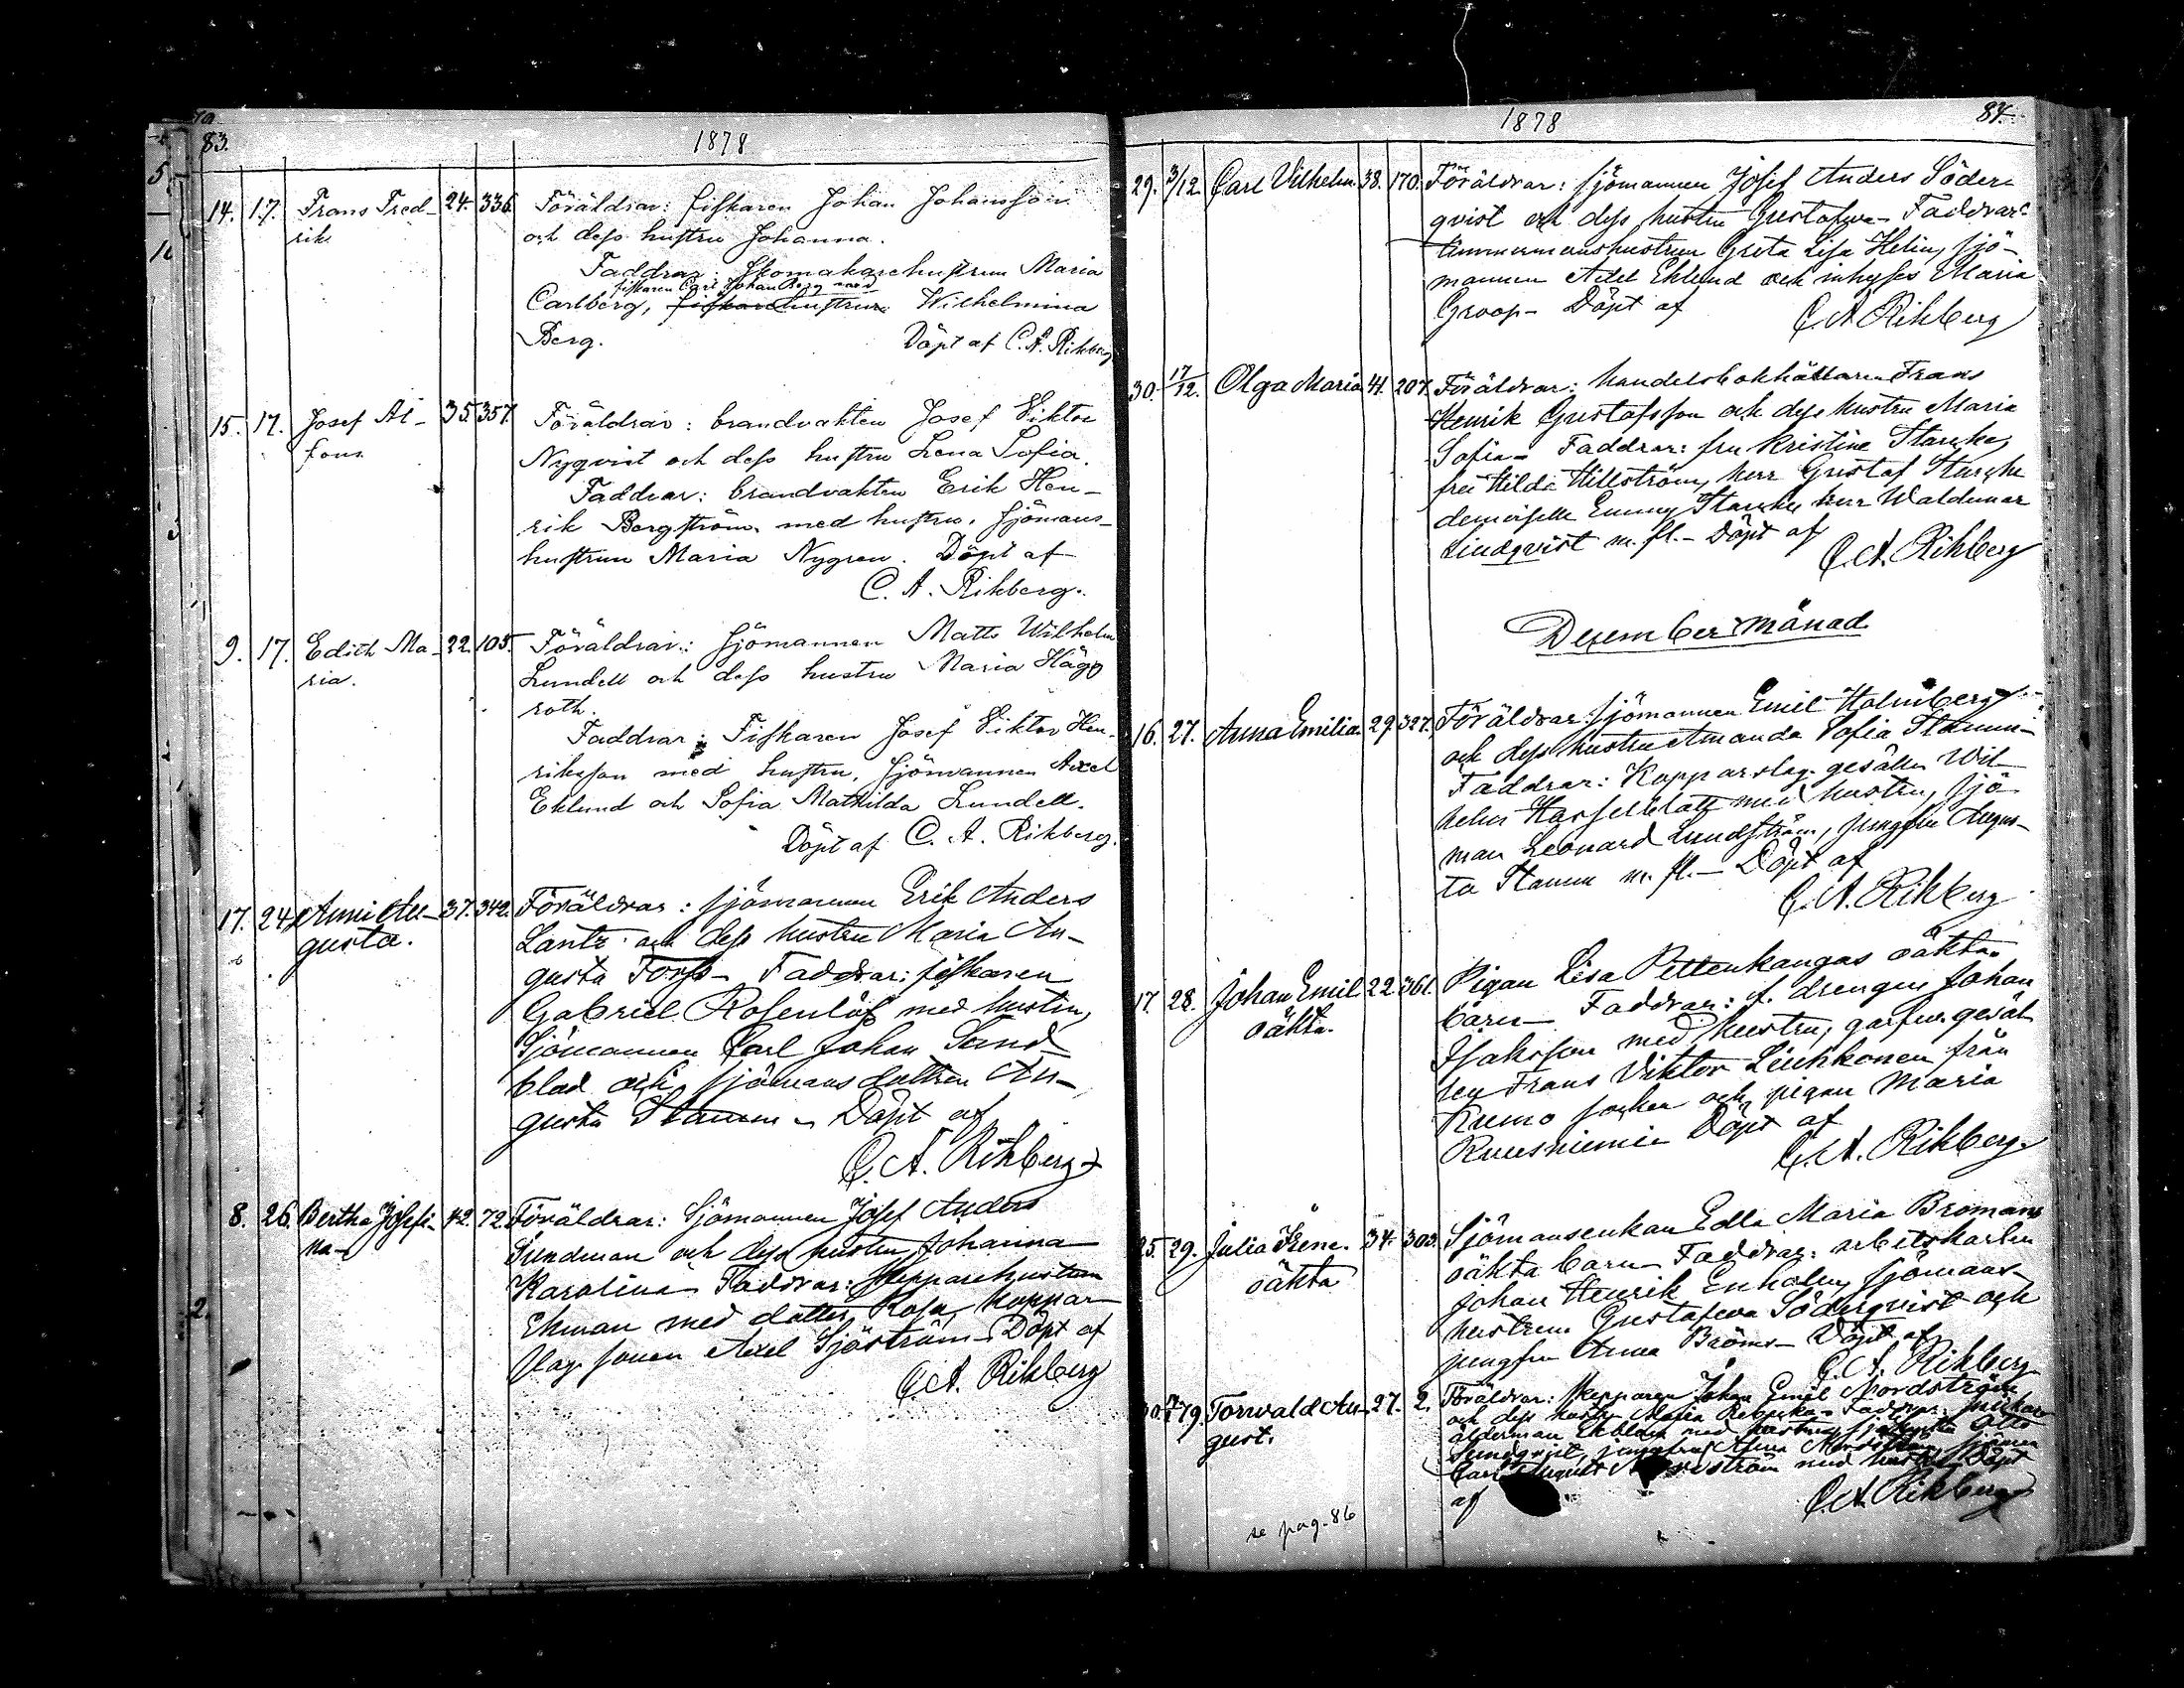 83.
1878
14. 17. Frans Fred- 24. 336. Föräldrar: fiskaren Johan Johansson
rik och dess hustru Johanna.
Faddrar: Skomakarehustrun Maria
fiskaren Carl Johan Berg med
Carlberg, fiskare hustrun Wilhelmina
Berg. Döpt af C. A. Rikberg
15. 17. Josef Al- 35. 357. Föräldrar: brandvakten Josef Viktor
fons Nyqvist och dess hustru Lena Sofia.
Faddrar: brandvakten Erik Hen-
rik Bergström med hustru, Sjömans-
hustrun Maria Nygren. Döpt af
C. A. Rikberg.
9. 17. Edith Ma- 22. 105. Föräldrar: Sjömannen Matts Wilhelm
ria. Lundell och dess hustru Maria Hägg
roth.
Faddrar: Fiskaren Josef Viktor Hen-
riksson med hustru, Sjömannen Axel
Eklund och Sofia Mathilda Lundell.
Döpt af C. A. Rikberg.
17. 24. Anni Au- 37. 342. Föräldrar: sjömannen Erik Anders
gusta. Lantz och dess hustru Maria Au-
gusta Forss- Faddrar: fiskaren
Gabriel Rosenlöf med hustru,
Sjömannen Carl Johan Sand
blad och sjömansdottren Au-
gusta Stamm - Döpt af
C. A. Rikberg
8. 26. Bertha Josefi- 42. 72. Föräldrar: Sjömannen Josef Anders
na- Sundman och dess hustru Johanna
Karolina- Faddrar: Skepparehustrun
Ekman med dotter Rosa, koppar-
slag. sonen Axel Sjöström - Döpt af
C. A. Rikberg
1878
84.
29. 3/12. Carl Vilhelm. 38. 170. Föräldrar: sjömannen Josef Anders Söder
qvist och dess hustru Gustafva - Faddrar:
timmermanshustrun Greta Lisa Helin, sjö-
mannen Axel Eklund och inhyses Maria
Groop- Döpt af C. A. Rikberg
30. 17/12. Olga Maria 41. 207. Föräldrar: handelsbokhållaren Frans
Henrik Gustafsson och dess hustru Maria
Sofia- Faddrar: fru Kristine
fru Hilda Hillström, herr Gustaf
demoiselle Emmy herr Waldemar
Lindqvist m. fl.- Döpt af
C. A. Rikberg
December månad
16. 27. Anna Emilia. 29. 327. Föräldrar: sjömannen Emil Holmberg
och dess hustru Amanda Sofia Stamm-
Faddrar: Kopparslag. gesällen Wil-
helm Hasselblatt med hustru, sjö
man Leonard Lundström, jungfru Augus-
ta Stamm m. fl. - Döpt af
C. A. Rikberg
17. 28. Johan Emil 22. 361. Pigan Lisa Pettenkangas oäkta
oäkta. barn- Faddrar: f. drengen Johan
Isaksson med hustru, garfv. gesäl
len Frans Viktor Liukkonen från
Kumo socken och pigan Maria
Ruusniemi Döpt af
C. A. Rikberg.
25. 29. Julia Irene. 34. 303. Sjömansenkan Edla Maria Bromans
oäkta oäkta barn- Faddrar: arbetskarlen
Johan Henrik Enholm, sjömans-
hustrun Gustafva Söderqvist och
jungfru Anna Bröms- Döpt af
C. A. Rikberg
79. Torwald Au- 27. 2. Föräldrar: Skepparen Johan Emil Nordström
gust. och dess hustru Maria Faddrar:
ålderman Ekblom med hustru, Otto
Sundqvist, jungfru
Carl August med Döpt
af C. A. Rikberg
se pag. 86